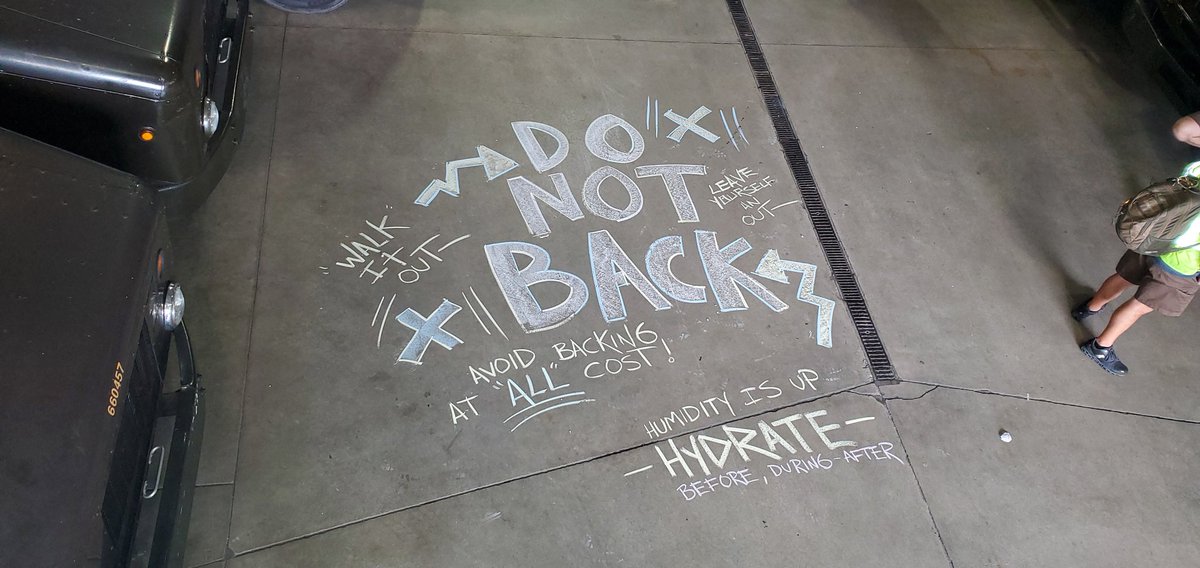 DO
NOT
BACK
LEAVE
YOURSELF
AN
OUT—
"WALK"
IT
OUT—
AVOID BACKING
AT "ALL" COST!
HUMIDITY IS UP
—HYDRATE—
BEFORE, DURING-AFTER
660457